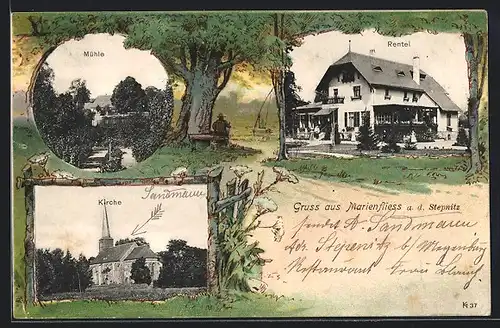 Mühle
Rentei
Kirche
Sandmann
Gruss aus Marienfliess a. d. Stepnitz
sendet A. Sandmann
Stepenitz b/ Meyenburg
Restaurant
K 37